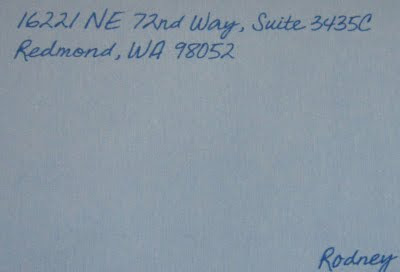 16221 NE 72nd Way, Suite 3435C
Redmond, WA 98052
Rodney